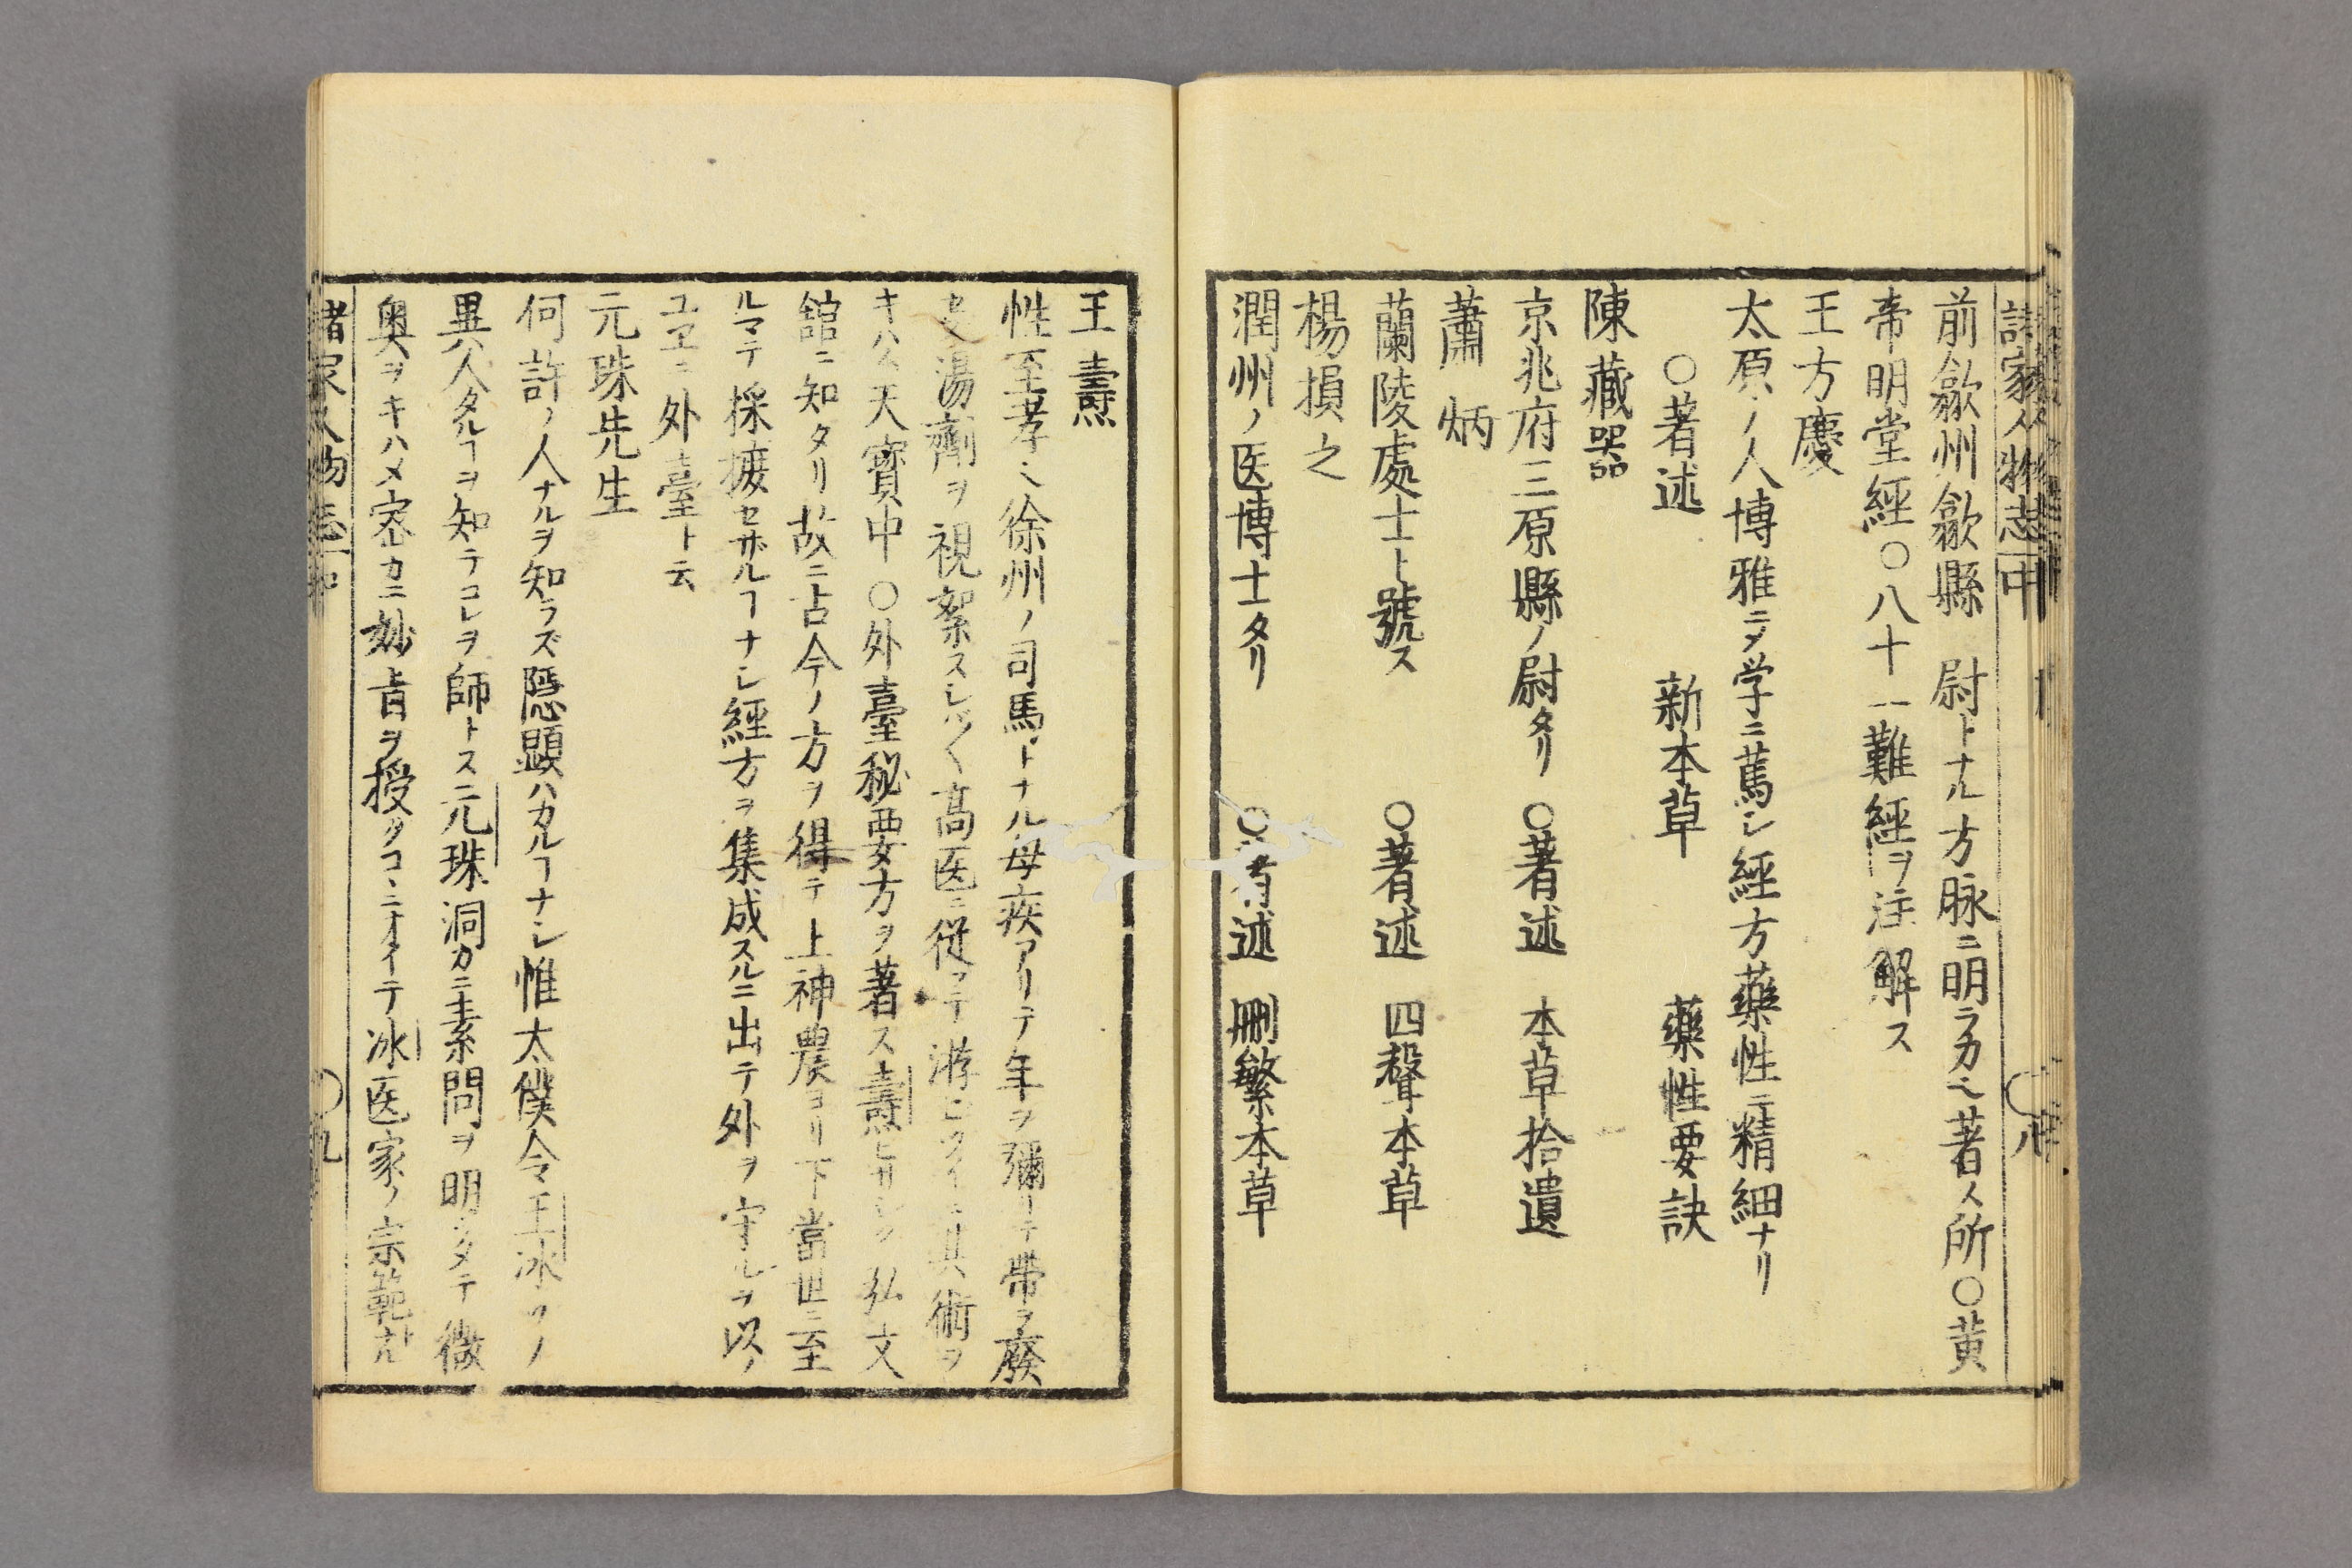 諸家人物志 中 八
前歙州歙縣尉トナル方脉ニ明ラカ也著ス所〇黄
帝明堂經〇八十一難經ヲ注解ス
王方慶
太原ノ人博雅ニメ学ニ篤シ經方藥性ニ精細ナリ
〇著述 新本草 藥性要訣
陳藏器
京兆府三原縣ノ尉タリ 〇著述 本草拾遺
蕭炳
蘭陵處士ト號ス 〇著述 四聲本草
楊損之
潤州ノ医博士タリ 〇著述 刪繁本草
王燾
性至孝也徐州ノ司馬トナル母疾アリテ年ヲ彌テ帶ヲ廢
セズ湯劑ヲ視絮スシバ〱高医ニ從テ游ビツイニ其術ヲ
キハム天寳中〇外臺秘要方ヲ著ス燾ヒサシク弘文
舘ニ知タリ故ニ古今ノ方ヲ得テ上神農ヨリ下當世ニ至
ルマテ採摭セザルヿナシ經方ヲ集成スルニ出テ外ヲ守ルヲ以ノ
ユヱニ外臺ト云
元珠先生
何許ノ人ナルヲ知ラズ隱顕ハカルヿナシ惟太僕令王冰ソノ
異人タルヿヲ知テコレヲ師トス元珠洞カニ素問ヲ明メテ微
奥ヲキハメ密カニ妙㫖ヲ授クコヽニオイテ冰医家ノ宗範トナル
諸家人物志 和 九